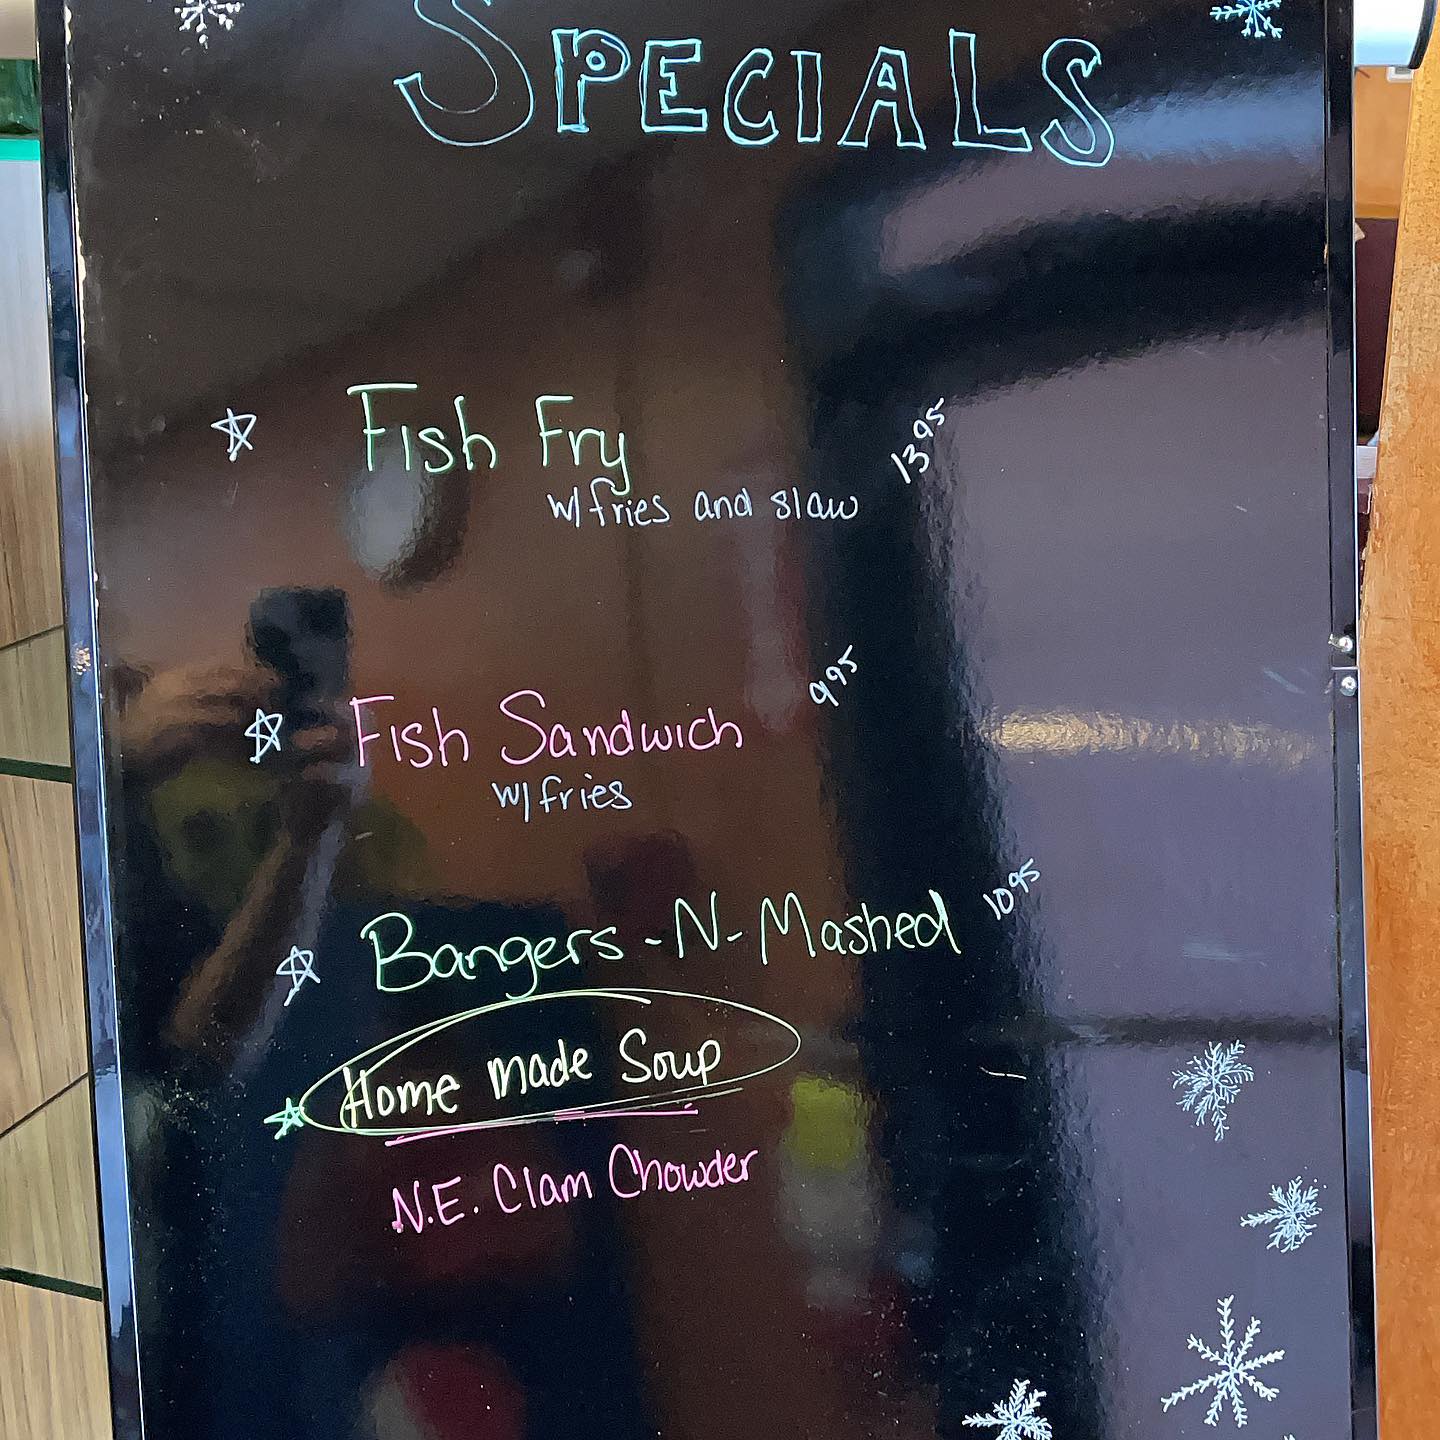 SPECIALS
Fish Fry 13 95
w/fries and slaw
Fish Sandwich 9 95
w/fries
Bangers-N-Mashed 10 95
Home made Soup
N.E. Clam Chowder